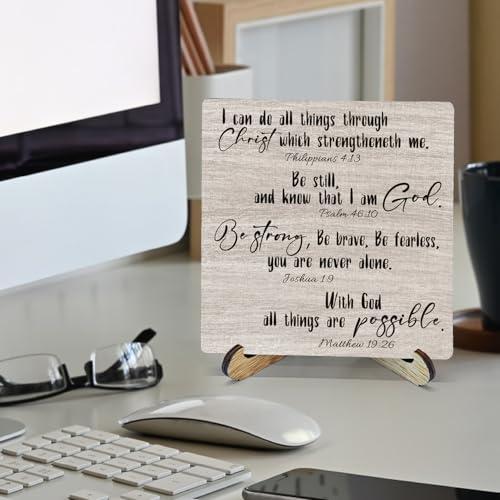 I can do all things through
Christ which strengtheneth me.
Philippians 4:13
Be still,
and know that I am God.
Psalm 46:10
Be strong, Be brave, Be fearless,
you are never alone.
Joshua 1:9
With God
all things are possible.
Matthew 19:26